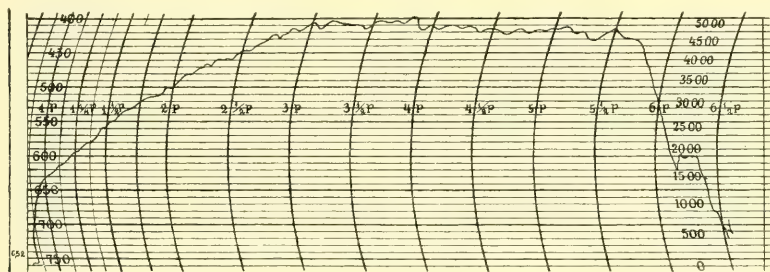 400
450
500
550
600
650
700
750
2 P
2 ½ P
3 P
3 ½ P
4 P
4 ½ P
5 P
5 ½ P
6 P
6 ½ P
5000
4500
4000
3500
3000
2500
2000
1500
1000
500
0